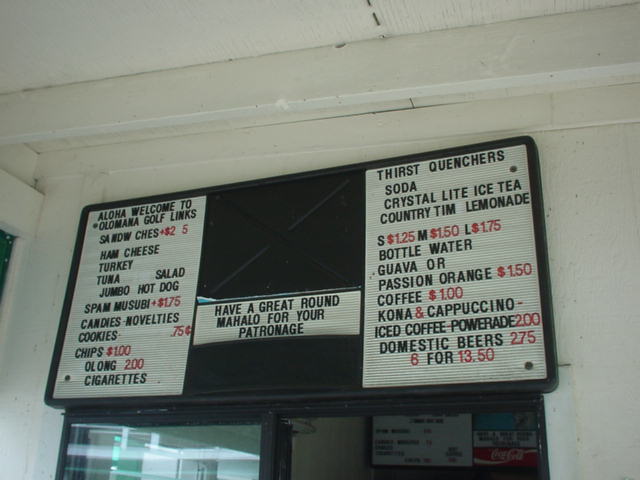 ALOHA WELCOME TO
OLOMANA GOLF LINKS
SANDW CHES+$2 5
HAM CHEESE
TURKEY
TUNA SALAD
JUMBO HOT DOG
SPAM MUSUBI+$1.75
CANDIES-NOVELTIES
COOKIES- .75¢
CHIPS $1.00
OLONG 2.00
CIGARETTES
HAVE A GREAT ROUND
MAHALO FOR YOUR
PATRONAGE
THIRST QUENCHERS
SODA
CRYSTAL LITE ICE TEA
COUNTRY TIM LEMONADE
S $1.25 M $1.50 L $1.75
BOTTLE WATER
GUAVA OR
PASSION ORANGE $1.50
COFFEE $1.00
KONA & CAPPUCCINO-
ICED COFFEE POWERADE 2.00
DOMESTIC BEERS 2.75
6 FOR 13.50
Coca-Cola